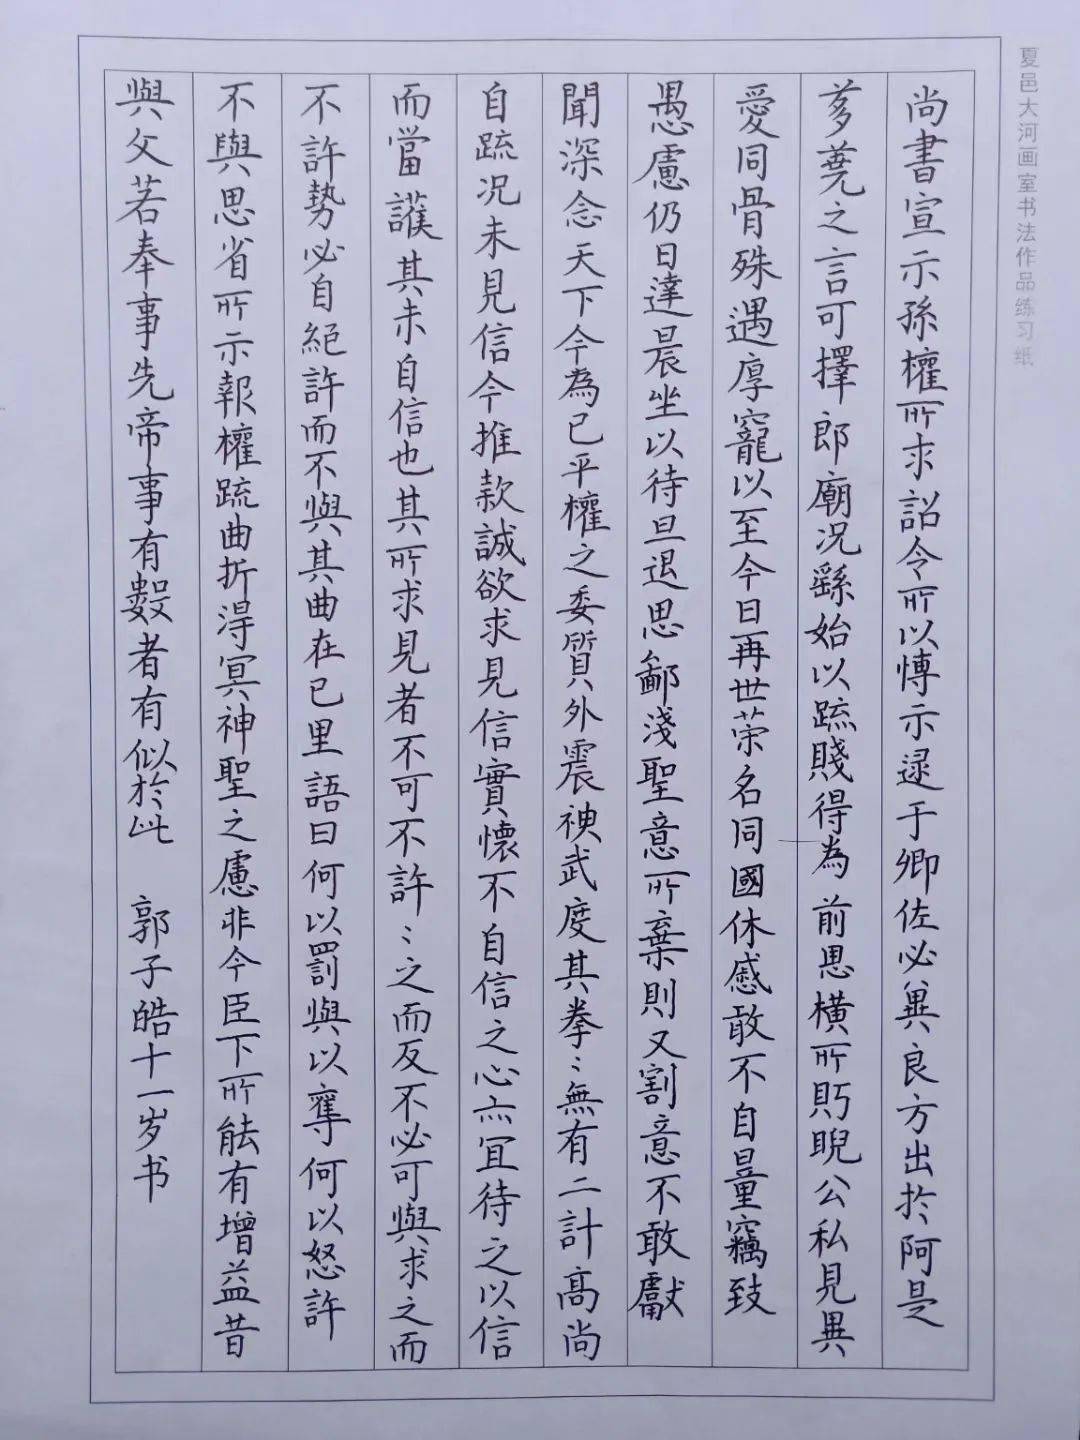 夏邑大河画室书法作品练习纸
尚書宣示孫權所求詔令所以博示逮于卿佐必冀良方出於阿是
芻蕘之言可擇郎廟況繇始以疏賤得為前恩橫所眄睨公私見異
愛同骨殊遇厚寵以至今日再世荣名同國休慼敢不自量竊致
愚慮仍日達晨坐以待旦退思鄙淺聖意所棄則又割意不敢獻
聞深念天下今為已平權之委質外震神武度其拳〻無有二計高尚
自疏況未見信今推款誠欲求見信實懷不自信之心亦宜待之以信
而當護其未自信也其所求見者不可不許〻之而反不必可與求之而
不許勢必自絕許而不與其曲在已里語曰何以罰與以奪何以怒許
不與思省所示報權疏曲折得宜神聖之慮非今臣下所能有增益昔
與父若奉事先帝事有數者有似於此 郭子皓十一岁书